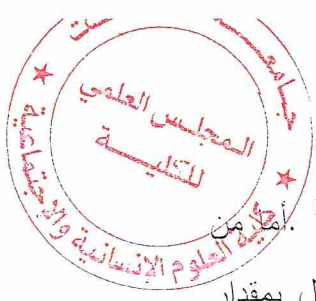 جامعـ
ـت
المجلس العلمي
للكليـــة
كلية العلوم الإنسانية والاجتماعية
.أما من
ل بمقدار